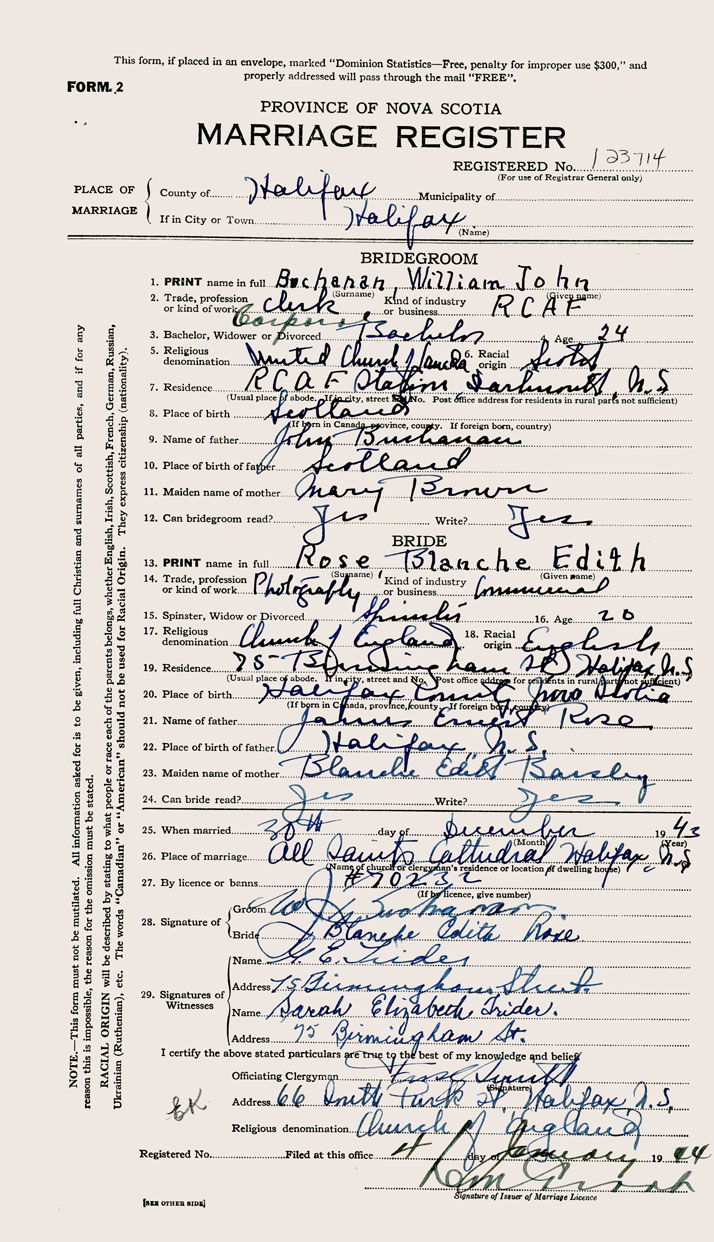 This form, if placed in an envelope, marked "Dominion Statistics—Free, penalty for improper use $300," and
properly addressed will pass through the mail "FREE".
FORM. 2
PROVINCE OF NOVA SCOTIA
MARRIAGE REGISTER
REGISTERED No. 123714
(For use of Registrar General only)
PLACE OF MARRIAGE
County of Halifax Municipality of
If in City or Town Halifax
(Name)
BRIDEGROOM
1. PRINT name in full Buchanan, William John
(Surname) (Given name)
2. Trade, profession or kind of work Clerk Corporal Kind of industry or business R C A F
3. Bachelor, Widower or Divorced Bachelor Age 24
5. Religious denomination United Church of Canada 6. Racial origin Scotch
7. Residence R C A F Station, Dartmouth, N.S
(Usual place of abode. If in city, street and No. Post office address for residents in rural parts not sufficient)
8. Place of birth Scotland
(If born in Canada, province, county. If foreign born, country)
9. Name of father John Buchanan
10. Place of birth of father Scotland
11. Maiden name of mother Mary Brown
12. Can bridegroom read? Yes Write? Yes
BRIDE
13. PRINT name in full Rose Blanche Edith
(Surname) (Given name)
14. Trade, profession or kind of work Photography Kind of industry or business Commercial
15. Spinster, Widow or Divorced Spinster 16. Age 20
17. Religious denomination Church of England 18. Racial origin English
19. Residence 75 Birmingham St, Halifax N.S
(Usual place of abode. If in city, street and No. Post office address for residents in rural parts not sufficient)
20. Place of birth Halifax County Nova Scotia
(If born in Canada, province, county. If foreign born, country)
21. Name of father James Ernest Rose
22. Place of birth of father Halifax N.S.
23. Maiden name of mother Blanche Edith Barsby
24. Can bride read? Yes Write? Yes
25. When married 30th day of December 1943
(Month) (Year)
26. Place of marriage All Saints Cathedral Halifax N.S
(Name of church or clergyman's residence or location of dwelling house)
27. By licence or banns #70232
(If by licence, give number)
28. Signature of
Groom W J Buchanan
Bride Blanche Edith Rose
29. Signatures of Witnesses
Name G. E. Trider
Address 75 Birmingham Street.
Name Sarah Elizabeth Trider.
Address 75 Birmingham St.
I certify the above stated particulars are true to the best of my knowledge and belief
Officiating Clergyman
(Signature)
Address 66 South Park St, Halifax N.S.
EK
Religious denomination Church of England
Registered No. Filed at this office 4 day of January 1944
Signature of Issuer of Marriage Licence
[SEE OTHER SIDE]
NOTE.—This form must not be mutilated. All information asked for is to be given, including full Christian and surnames of all parties, and if for any
reason this is impossible, the reason for the omission must be stated.
RACIAL ORIGIN will be described by stating to what people or race each of the parents belongs, whether English, Irish, Scottish, French, German, Russian,
Ukrainian (Ruthenian), etc. The words "Canadian" or "American" should not be used for Racial Origin. They express citizenship (nationality).